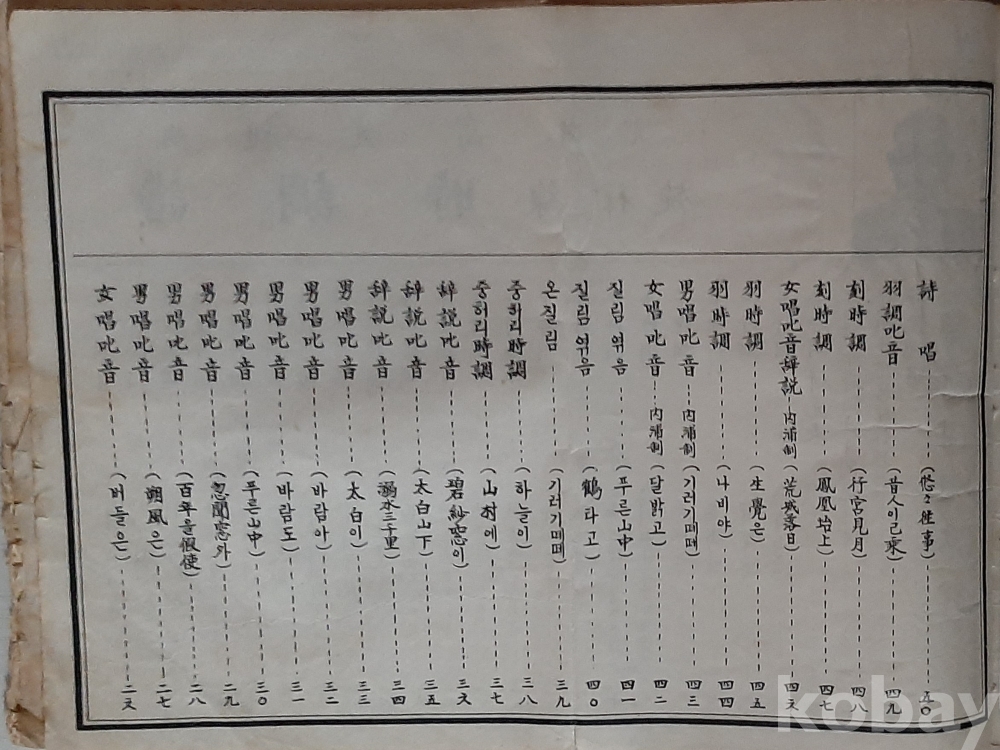 女唱叱音 (버들은) 二六
男唱叱音 (朔風은) 二七
男唱叱音 (百年을假使) 二八
男唱叱音 (忽聞窓外) 二九
男唱叱音 (푸른山中) 三〇
男唱叱音 (바람도) 三一
男唱叱音 (바람아) 三二
男唱叱音 (太白이) 三三
辭說叱音 (溺水三千里) 三四
辭說叱音 (太白山下) 三五
辭說叱音 (碧紗窓이) 三六
중허리時調 (山村에) 三七
중하리時調 (하늘이) 三八
온질림 (기러기떼떼) 三九
질림엮음 (鶴타고) 四〇
질림엮음 (푸른山中) 四一
女唱叱音 內浦制 (달밝고) 四二
男唱叱音 內浦制 (기러기떼떼) 四三
羽時調 (나비야) 四四
羽時調 (生覺은) 四五
女唱叱音辭說 內浦制 (荒城落日) 四六
刻時調 (鳳凰坮上) 四七
刻時調 (行宮見月) 四八
羽調叱音 (昔人이己乘) 四九
詩唱 (悠々往事) 五〇
kobay